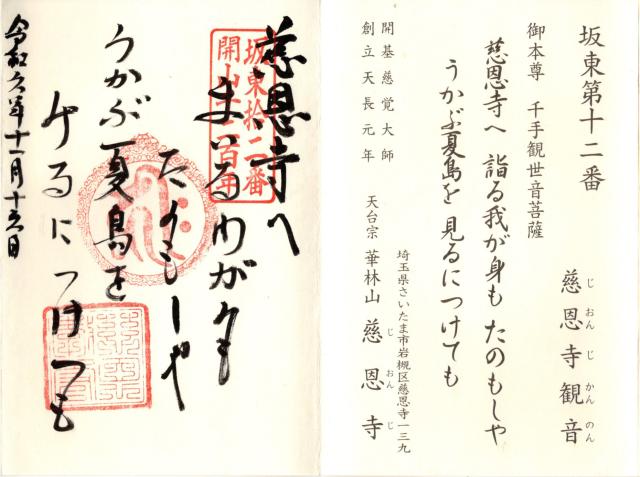 坂東第十二番
慈恩寺観音
じおんじかんのん
御本尊 千手観世音菩薩
慈恩寺へ 詣る我が身も たのもしや
うかぶ夏島を 見るにつけても
開基慈覚大師
創立天長元年
埼玉県さいたま市岩槻区慈恩寺一三九
天台宗 華林山 慈恩寺
じおんじ
坂東拾二番
開山千二百年
慈恩寺へ
まいるわが身も
たのもしや
うかぶ夏島を
みるにつけても
令和六年十一月十六日